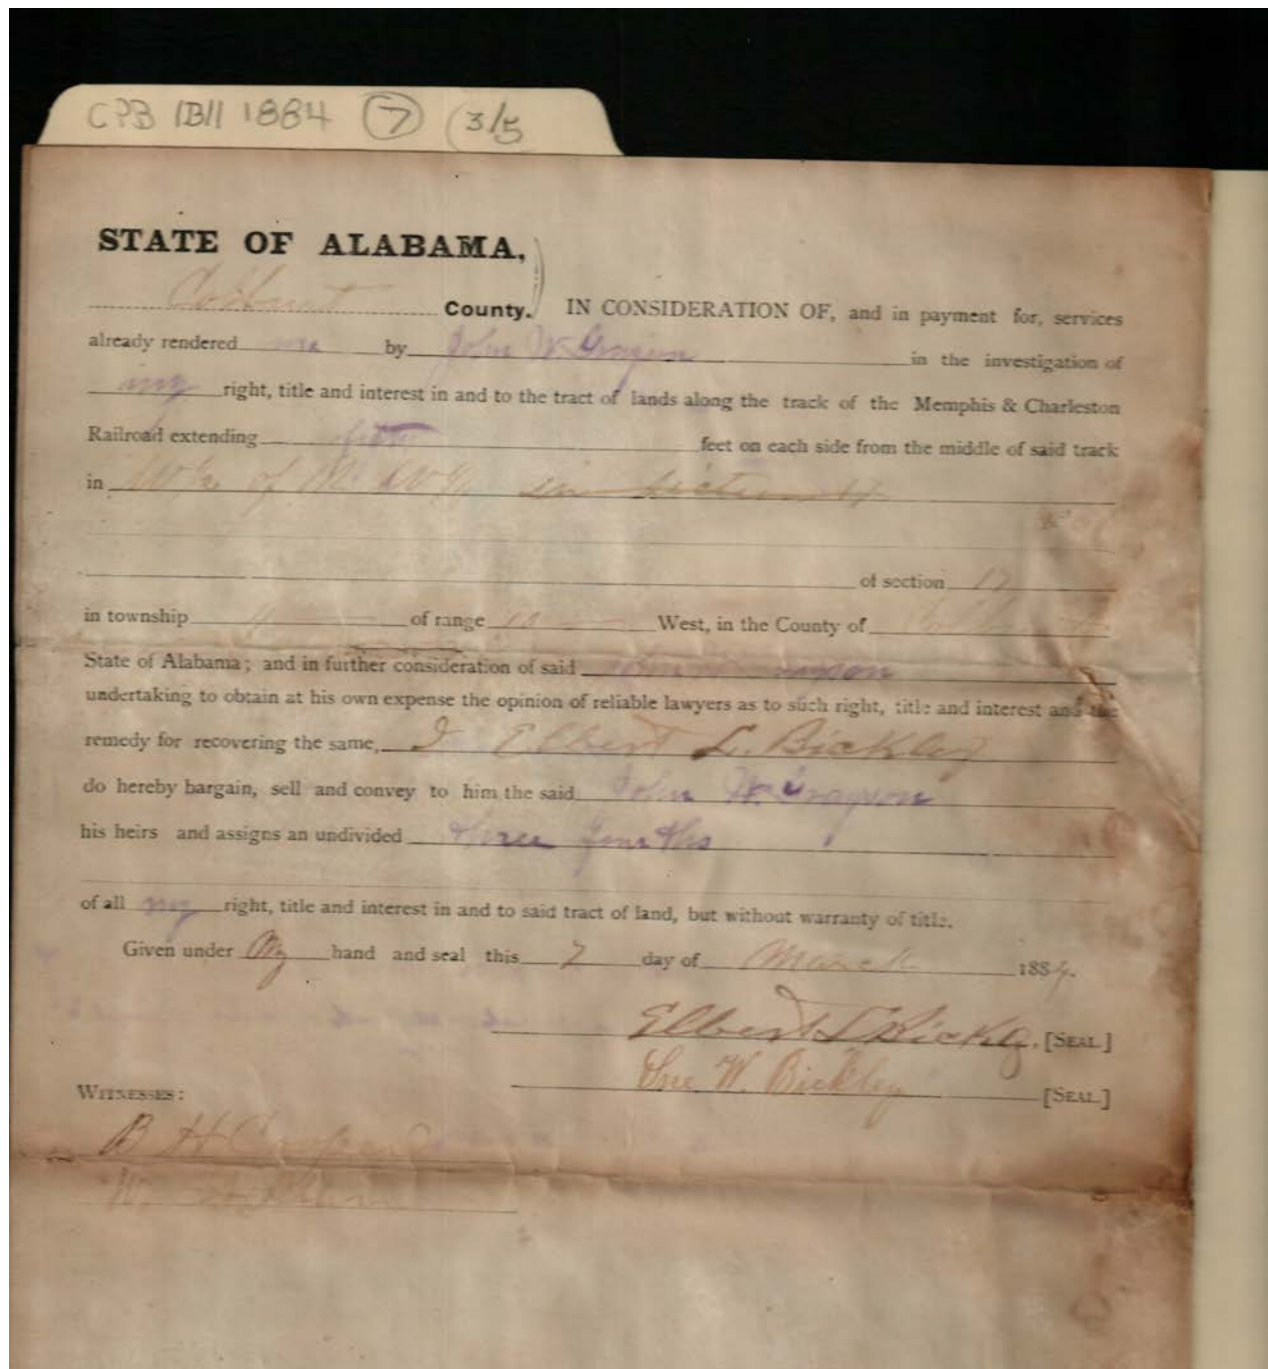 CPB 1B11 1884 7 (3/5
STATE OF ALABAMA,
Colbert County. IN CONSIDERATION OF, and in payment for, services
already rendered me by John W Grayson in the investigation of
my right, title and interest in and to the tract of lands along the track of the Memphis & Charleston
Railroad extending fifty feet on each side from the middle of said track
in W½ of N. W¼ in section
of section 17
in township 4 of range West, in the County of
State of Alabama; and in further consideration of said John W Grayson
undertaking to obtain at his own expense the opinion of reliable lawyers as to such right, title and interest and the
remedy for recovering the same, I Elbert L. Bickley
do hereby bargain, sell and convey to him the said John W. Grayson
his heirs and assigns an undivided three fourths
of all my right, title and interest in and to said tract of land, but without warranty of title.
Given under My hand and seal this 7 day of March 1884.
Elbert L Bickley, [SEAL]
Sue W. Bickley [SEAL]
WITNESSES:
B H
W.